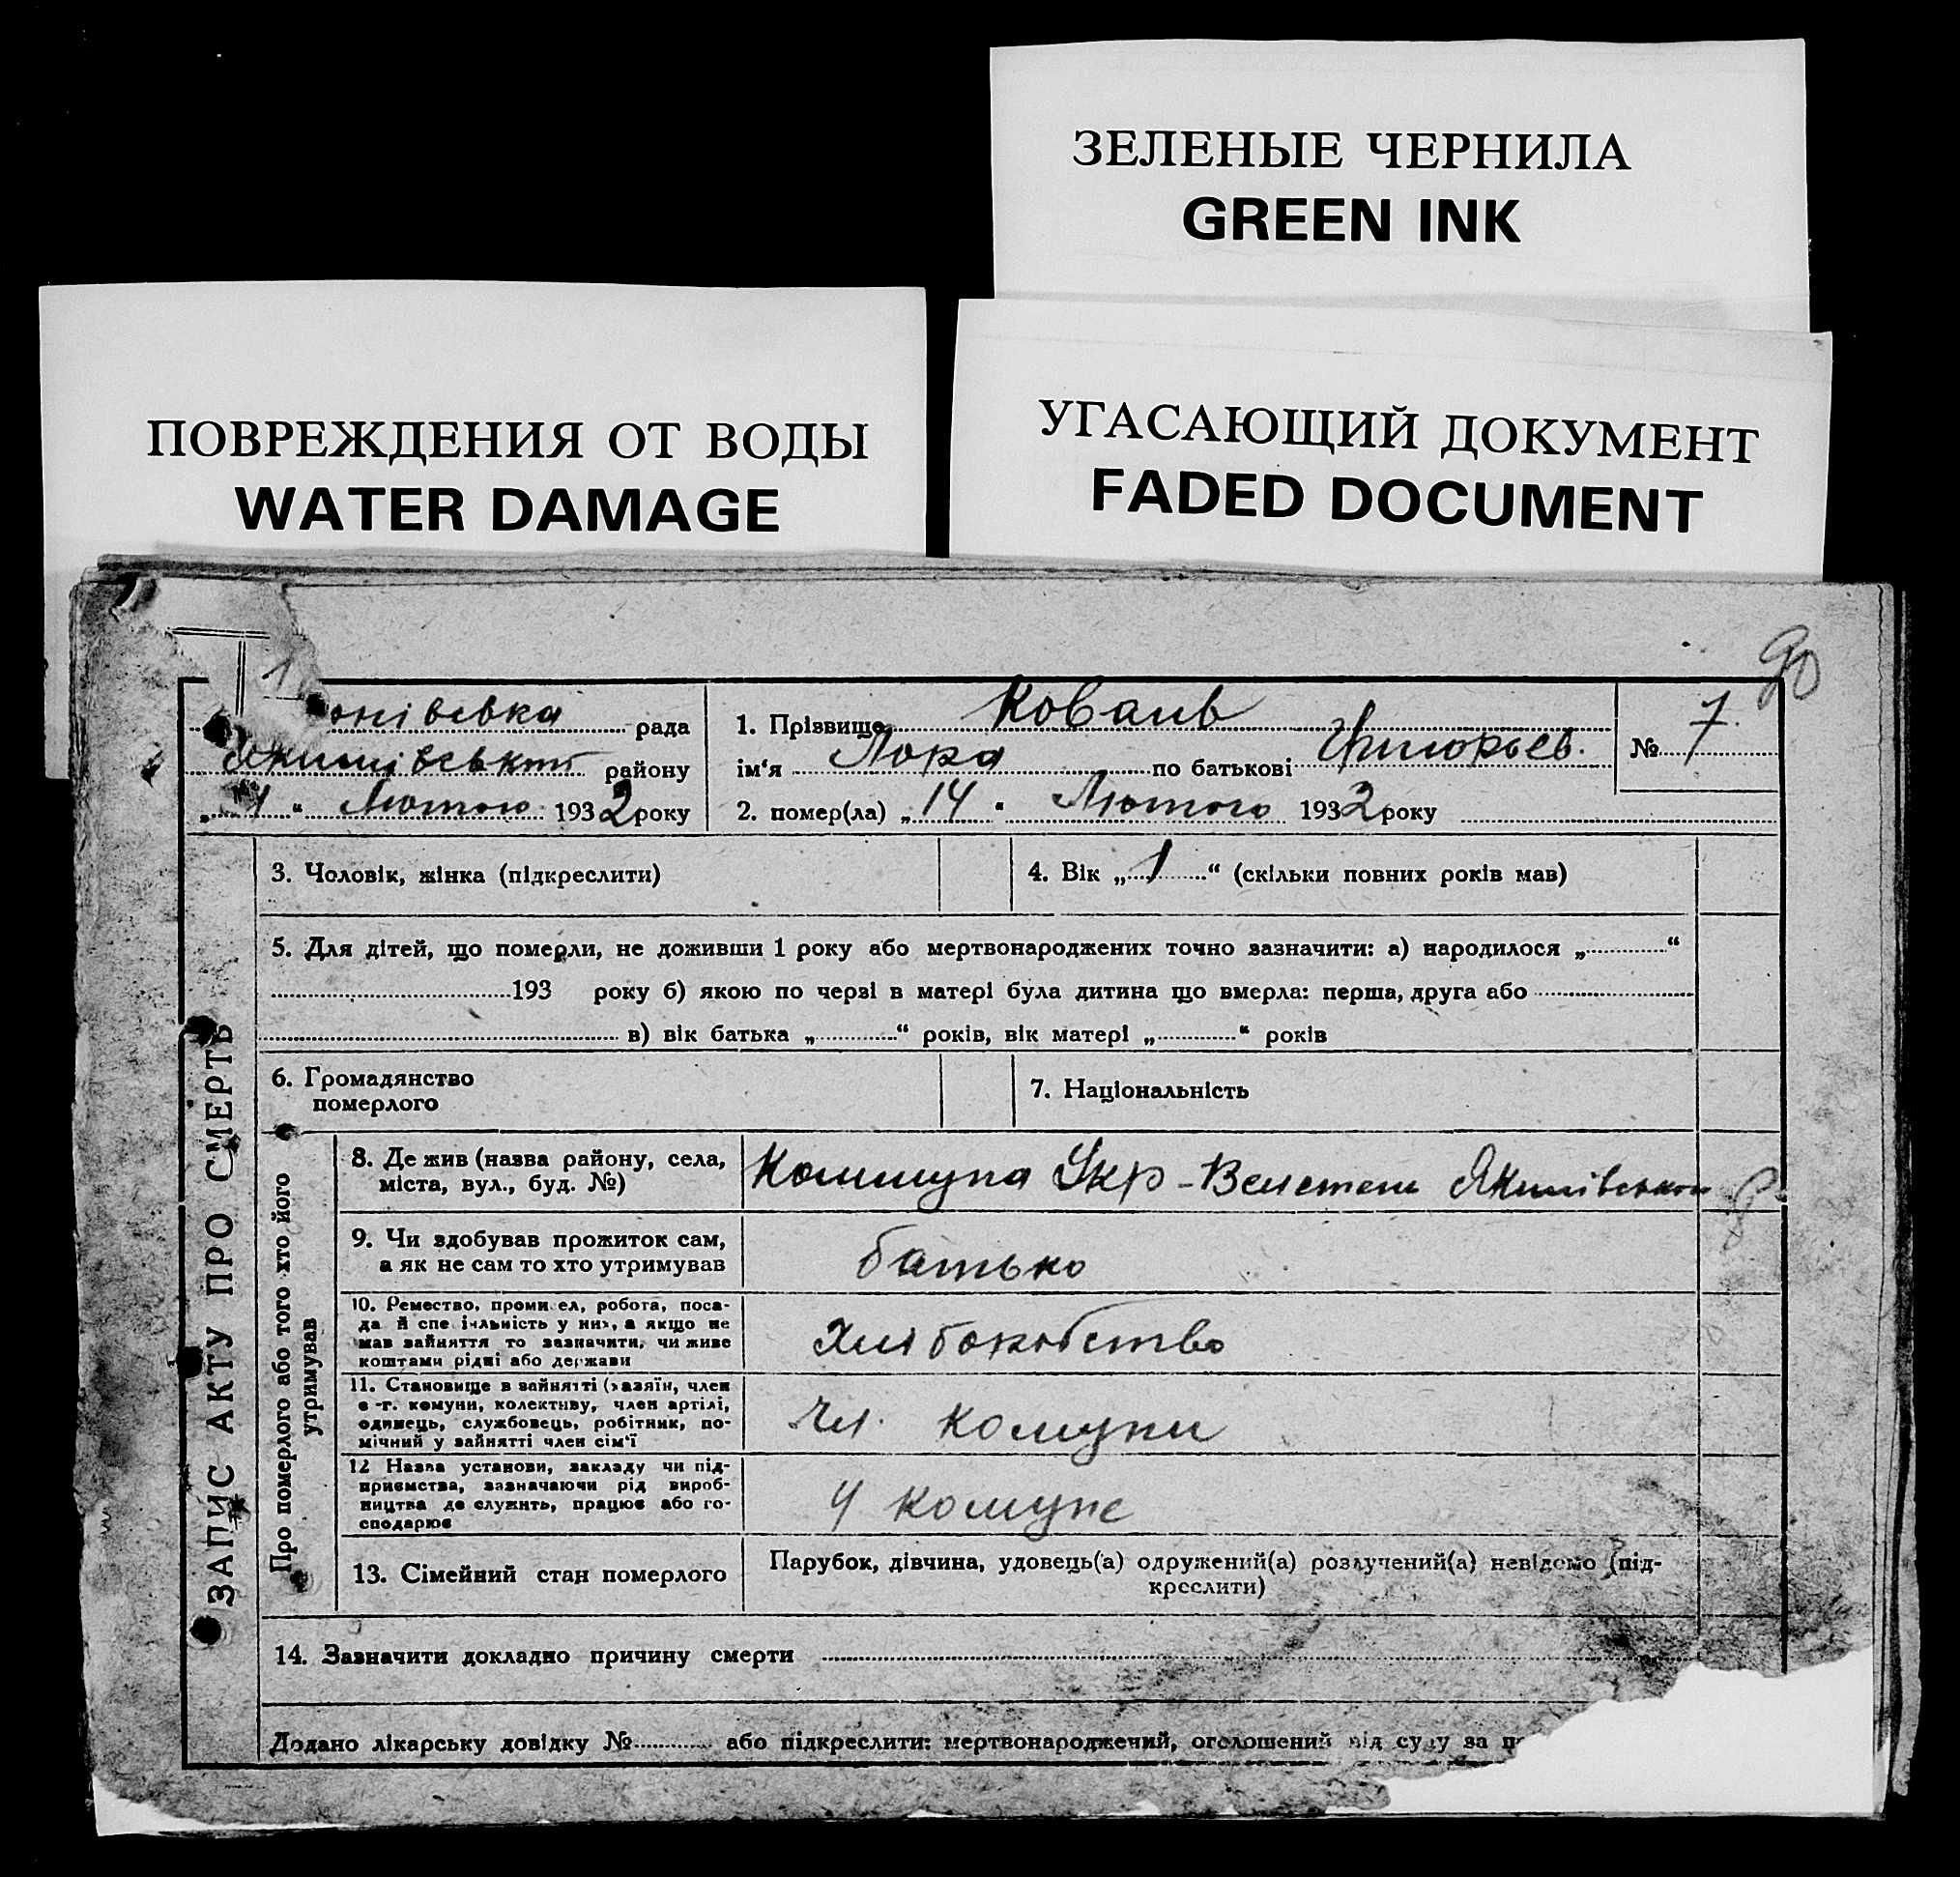 ЗЕЛЕНЫЕ ЧЕРНИЛА
GREEN INK
ПОВРЕЖДЕНИЯ ОТ ВОДЫ
WATER DAMAGE
УГАСАЮЩИЙ ДОКУМЕНТ
FADED DOCUMENT
90
онівська рада
Якимівського району
„ 1 “ Лютого 1932 року
1. Прізвище Коваль
ім‘я Лора по батькові Григорьев.
2. помер(ла) „ 14 “ Лютого 1932 року
№ 7.
ЗАПИС АКТУ ПРО СМЕРТЬ
3. Чоловік, жінка (підкреслити)
4. Вік „ 1 “ (скільки повних років мав)
5. Для дітей, що померли, не доживши 1 року або мертвонароджених точно зазначити: а) народилося „ “
193 року б) якою по черзі в матері була дитина що вмерла: перша, друга або
в) вік батька „ “ років, вік матері „ “ років
6. Громадянство
померлого
7. Національність
Про померлого або того хто його
утримував
8. Де жив (назва району, села,
міста, вул., буд. №)
Коммуна Укр-Велетень Якимівськой р.
9. Чи здобував прожиток сам,
а як не сам то хто утримував
батько
10. Ремество, промисел, робота, поса-
да й спеціяльність у них, а якщо не
мав зайняття то зазначити, чи живе
коштами рідні або держави
Хліборобство
11. Становище в зайнятті (хазяїн, член
с.-г. комуни, колективу, член артілі,
одинець, службовець, робітник, по-
мічний у зайнятті член сім‘ї
Чл. комуни
12 Назва установи, закладу чи під-
приємства, зазначаючи рід вироб-
ництва де служить, працює або го-
сподарює
У комуне
13. Сімейний стан померлого
Парубок, дівчина, удовець(а) одружений(а) розлучений(а) невідомо (під-
креслити)
14. Зазначити докладно причину смерти
Додано лікарську довідку № або підкреслити: мертвонароджений, оголошений від суду за